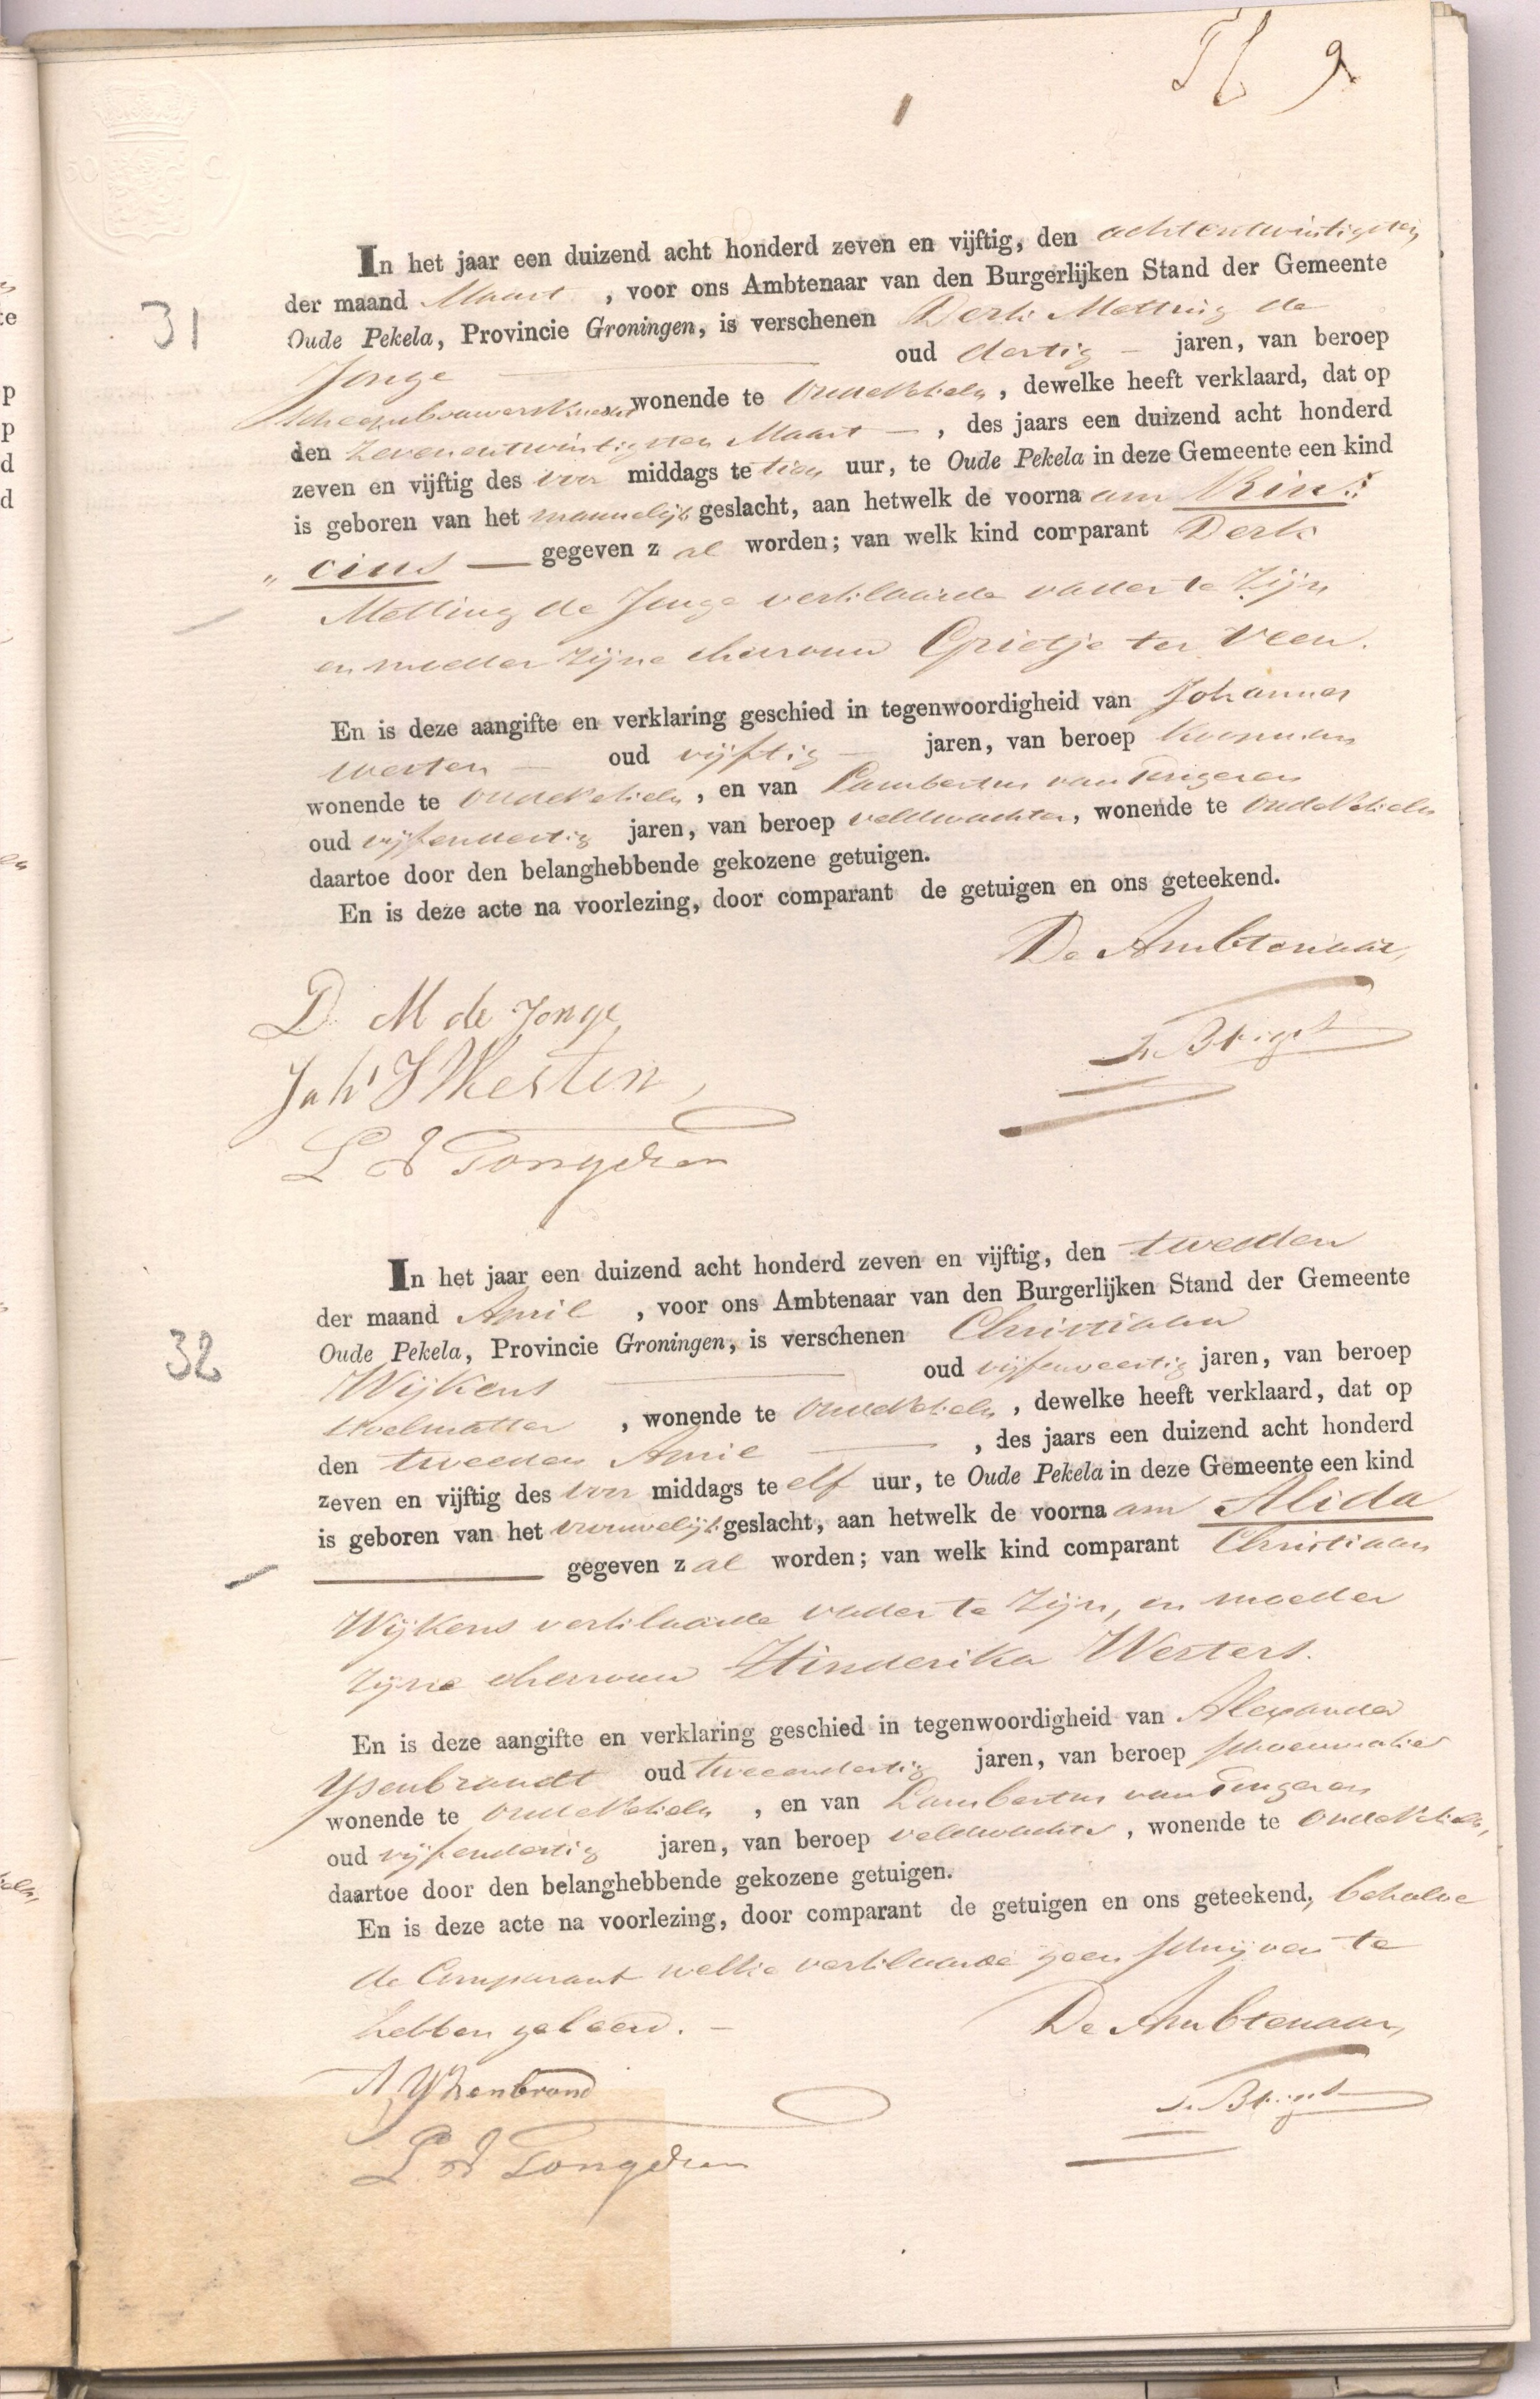 9
31
In het jaar een duizend acht honderd zeven en vijftig, den achtentwintigsten
der maand Maart, voor ons Ambtenaar van den Burgerlijken Stand der Gemeente
Oude Pekela, Provincie Groningen, is verschenen Derk Metting de
Jonge oud dertig jaren, van beroep
scheepsbouwersknecht wonende te OudePekela, dewelke heeft verklaard, dat op
den zevenentwintigsten Maart, des jaars een duizend acht honderd
zeven en vijftig des voor middags te tien uur, te Oude Pekela in deze Gemeente een kind
is geboren van het mannelijk geslacht, aan hetwelk de voornaam Rins:
„cius — gegeven zal worden; van welk kind comparant Derk
Metting de Jonge verklaarde vader te zijn
en moeder zijne ehevrouw Grietje ter Veen.
En is deze aangifte en verklaring geschied in tegenwoordigheid van Johannes
Westen oud vijftig jaren, van beroep Koopman
wonende te OudePekela, en van Lambertus van Tongeren
oud vijfendertig jaren, van beroep veldwachter, wonende te OudePekela
daartoe door den belanghebbende gekozene getuigen.
En is deze acte na voorlezing, door comparant de getuigen en ons geteekend.
De Ambtenaar,
D. M de Jonge
Joh' S Westen
L v Tongeren
32
In het jaar een duizend acht honderd zeven en vijftig, den tweeden
der maand April, voor ons Ambtenaar van den Burgerlijken Stand der Gemeente
Oude Pekela, Provincie Groningen, is verschenen Christiaan
Wijkens oud vijfenveertig jaren, van beroep
stoelmatter, wonende te OudePekela, dewelke heeft verklaard, dat op
den tweeden April, des jaars een duizend acht honderd
zeven en vijftig des voor middags te elf uur, te Oude Pekela in deze Gemeente een kind
is geboren van het vrouwelijk geslacht, aan hetwelk de voornaam Alida
— gegeven zal worden; van welk kind comparant Christiaan
Wijkens verklaarde vader te zijn, en moeder
zijne ehevrouw Hinderika Westers.
En is deze aangifte en verklaring geschied in tegenwoordigheid van Alexander
Ysenbrandt oud tweeendertig jaren, van beroep schoenmaker
wonende te OudePekela, en van Lambertus van Tongeren
oud vijfendertig jaren, van beroep veldwachter, wonende te OudePekela,
daartoe door den belanghebbende gekozene getuigen.
En is deze acte na voorlezing, door comparant de getuigen en ons geteekend, behalve
de Comparant welke verklaarde geen schrijven te
hebben geleerd. —
De Ambtenaar,
A Yzenbrand
L v Tongeren